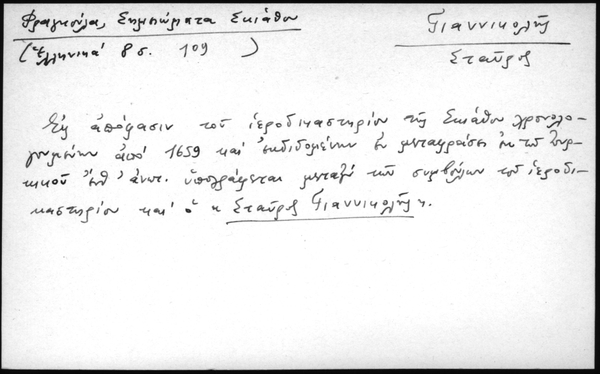 Φραγκούλα, Σημειώματα Σκιάθου
(Ἑλληνικά 8 σ. 109 )
Γιαννικολῆς
Σταῦρος
Εἰς ἀπόφασιν τοῦ ἱεροδικαστηρίου τῆς Σκιάθου χρονολο-
γουμένην ἀπό 1659 καί ἐκδιδομένην ἐν μεταφράσει ἐκ τοῦ Τουρ-
κικοῦ ἐνθ' ἀνωτ. ὑπογράφεται μεταξύ τῶν συμβούλων τοῦ ἱεροδι-
καστηρίου καί ὁ « Σταῦρος Γιαννικολῆς ».